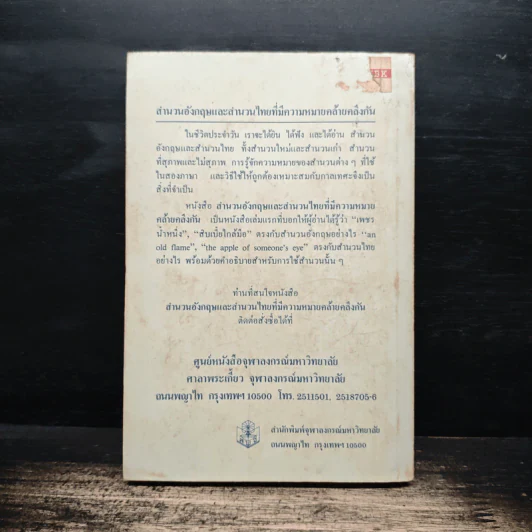 สำนวนอังกฤษและสำนวนไทยที่มีความหมายคล้ายคลึงกัน
ในชีวิตประจำวัน เราจะได้ยิน ได้ฟัง และได้อ่าน สำนวน
อังกฤษและสำนวนไทย ทั้งสำนวนใหม่และสำนวนเก่า สำนวน
ที่สุภาพและไม่สุภาพ การรู้จักความหมายของสำนวนต่าง ๆ ที่ใช้
ในสองภาษา และวิธีใช้ให้ถูกต้องเหมาะสมกับกาลเทศะจึงเป็น
สิ่งที่จำเป็น
หนังสือ สำนวนอังกฤษและสำนวนไทยที่มีความหมาย
คล้ายคลึงกัน เป็นหนังสือเล่มแรกที่บอกให้ผู้อ่านได้รู้ว่า "เพชร
น้ำหนึ่ง", "สับเบี้ยใกล้มือ" ตรงกับสำนวนอังกฤษอย่างไร "an
old flame", "the apple of someone's eye" ตรงกับสำนวนไทย
อย่างไร พร้อมด้วยคำอธิบายสำหรับการใช้สำนวนนั้น ๆ
ท่านที่สนใจหนังสือ
สำนวนอังกฤษและสำนวนไทยที่มีความหมายคล้ายคลึงกัน
ติดต่อสั่งซื้อได้ที่
ศูนย์หนังสือจุฬาลงกรณ์มหาวิทยาลัย
ศาลาพระเกี้ยว จุฬาลงกรณ์มหาวิทยาลัย
ถนนพญาไท กรุงเทพฯ 10500 โทร. 2511501, 2518705-6
สำนักพิมพ์จุฬาลงกรณ์มหาวิทยาลัย
ถนนพญาไท กรุงเทพฯ 10500